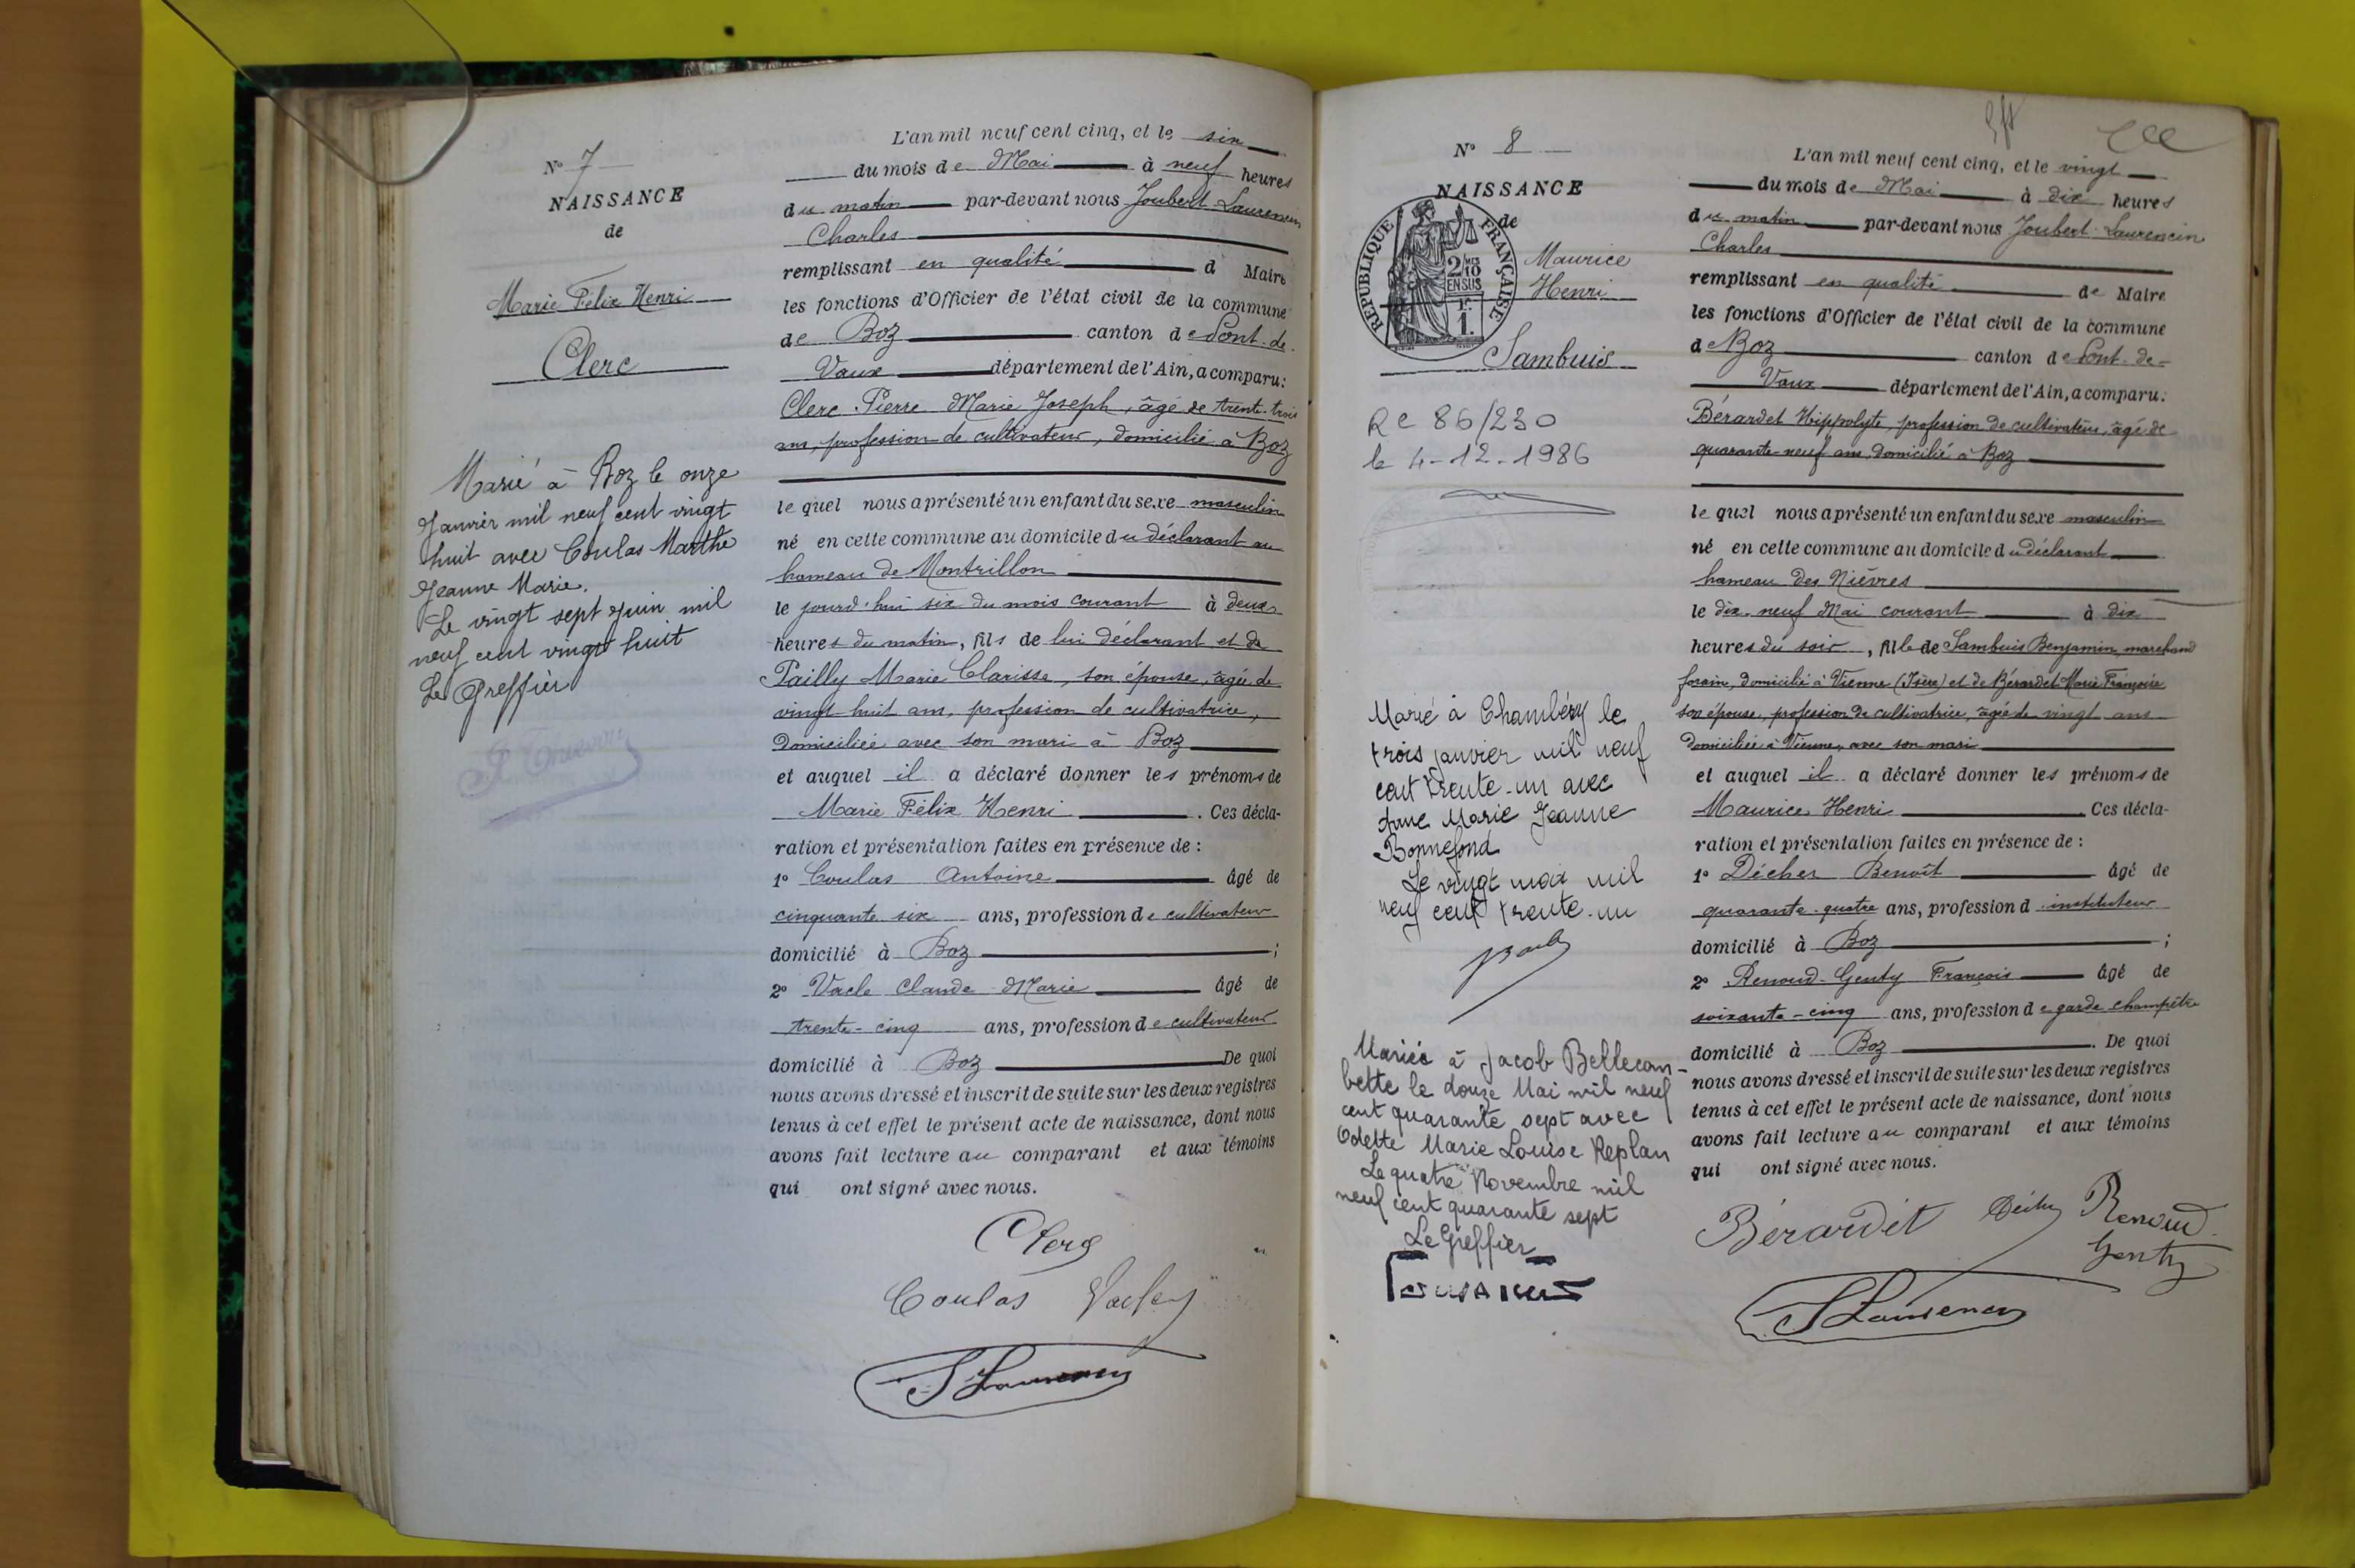 N° 7
NAISSANCE
de
Marie Félix Henri
Clerc
Marié à Boz le onze
Janvier mil neuf cent vingt
huit avec Coulas Marthe
Jeanne Marie.
Le vingt sept Juin mil
neuf cent vingt huit
Le Greffier
L'an mil neuf cent cinq, et le six
du mois de Mai à neuf heures
du matin par-devant nous Joubert Laurencin
Charles
remplissant en qualité d Maire
les fonctions d'Officier de l'état civil de la commune
de Boz canton de Pont-de-
Vaux département de l'Ain, a comparu:
Clerc Pierre Marie Joseph, âgé de trente-trois
ans, profession de cultivateur, domicilié à Boz
le quel nous a présenté un enfant du sexe masculin
né en cette commune au domicile du déclarant au
hameau de Montrillon
le jourd'hui six du mois courant à deux
heures du matin, fils de lui déclarant et de
Pailly Marie Clarisse, son épouse, âgée de
vingt-huit ans, profession de cultivatrice,
domiciliée avec son mari à Boz
et auquel il a déclaré donner les prénoms de
Marie Félix Henri. Ces décla-
ration et présentation faites en présence de:
1° Coulas Antoine âgé de
cinquante six ans, profession de cultivateur
domicilié à Boz;
2° Vacle Claude Marie âgé de
trente-cinq ans, profession de cultivateur
domicilié à Boz De quoi
nous avons dressé et inscrit de suite sur les deux registres
tenus à cet effet le présent acte de naissance, dont nous
avons fait lecture au comparant et aux témoins
qui ont signé avec nous.
Clerc
Coulas Vacle
J Laurencin
N° 8
NAISSANCE
de
REPUBLIQUE FRANÇAISE
2/10 EN SUS
1 F.
Maurice
Henri
Sambuis
Rc 86/230
le 4-12-1986
Marié à Chambéry le
trois janvier mil neuf
cent trente-un avec
Marie Jeanne
Bonnefond
Le vingt mai mil
neuf cent trente-un
Mariée à Jacob Bellecom-
bette le douze Mai mil neuf
cent quarante sept avec
Odette Marie Louise Replan
Le quatre Novembre mil
neuf cent quarante sept
Le Greffier
L'an mil neuf cent cinq, et le vingt
du mois de Mai à dix heures
du matin par-devant nous Joubert-Laurencin
Charles
remplissant en qualité de Maire
les fonctions d'Officier de l'état civil de la commune
de Boz canton de Pont-de-
Vaux département de l'Ain, a comparu:
Bérardet Hippolyte, profession de cultivateur, âgé de
quarante-neuf ans, domicilié à Boz
le quel nous a présenté un enfant du sexe masculin
né en cette commune au domicile du déclarant
hameau des Nièvres
le dix-neuf Mai courant à dix
heures du soir, fils de Sambuis Benjamin, marchand
forain, domicilié à Vienne (Isère) et de Bérardet Marie Françoise
son épouse, profession de cultivatrice, âgée de vingt ans
domiciliée à Vienne, avec son mari
et auquel il a déclaré donner les prénoms de
Maurice Henri. Ces décla-
ration et présentation faites en présence de:
1° Décher Benoît âgé de
quarante-quatre ans, profession d instituteur
domicilié à Boz;
2° Renoud-Genty François âgé de
soixante-cinq ans, profession de garde champêtre
domicilié à Boz. De quoi
nous avons dressé et inscrit de suite sur les deux registres
tenus à cet effet le présent acte de naissance, dont nous
avons fait lecture au comparant et aux témoins
qui ont signé avec nous.
Bérardet Décher Renoud
Genty
J Laurencin